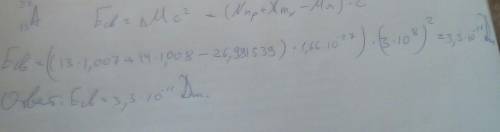 ₁₃A Eсв = ΔMc² = (Nmₚ + Xmₙ - Mя) · c
Eсв = ((13 · 1,007 + 14 · 1,008 - 26,981539) · 1,66 · 10⁻²⁷) · (3 · 10⁸)² = 3,3 · 10⁻¹¹ Дж.
Ответ: Eсв = 3,3 · 10⁻¹¹ Дж.